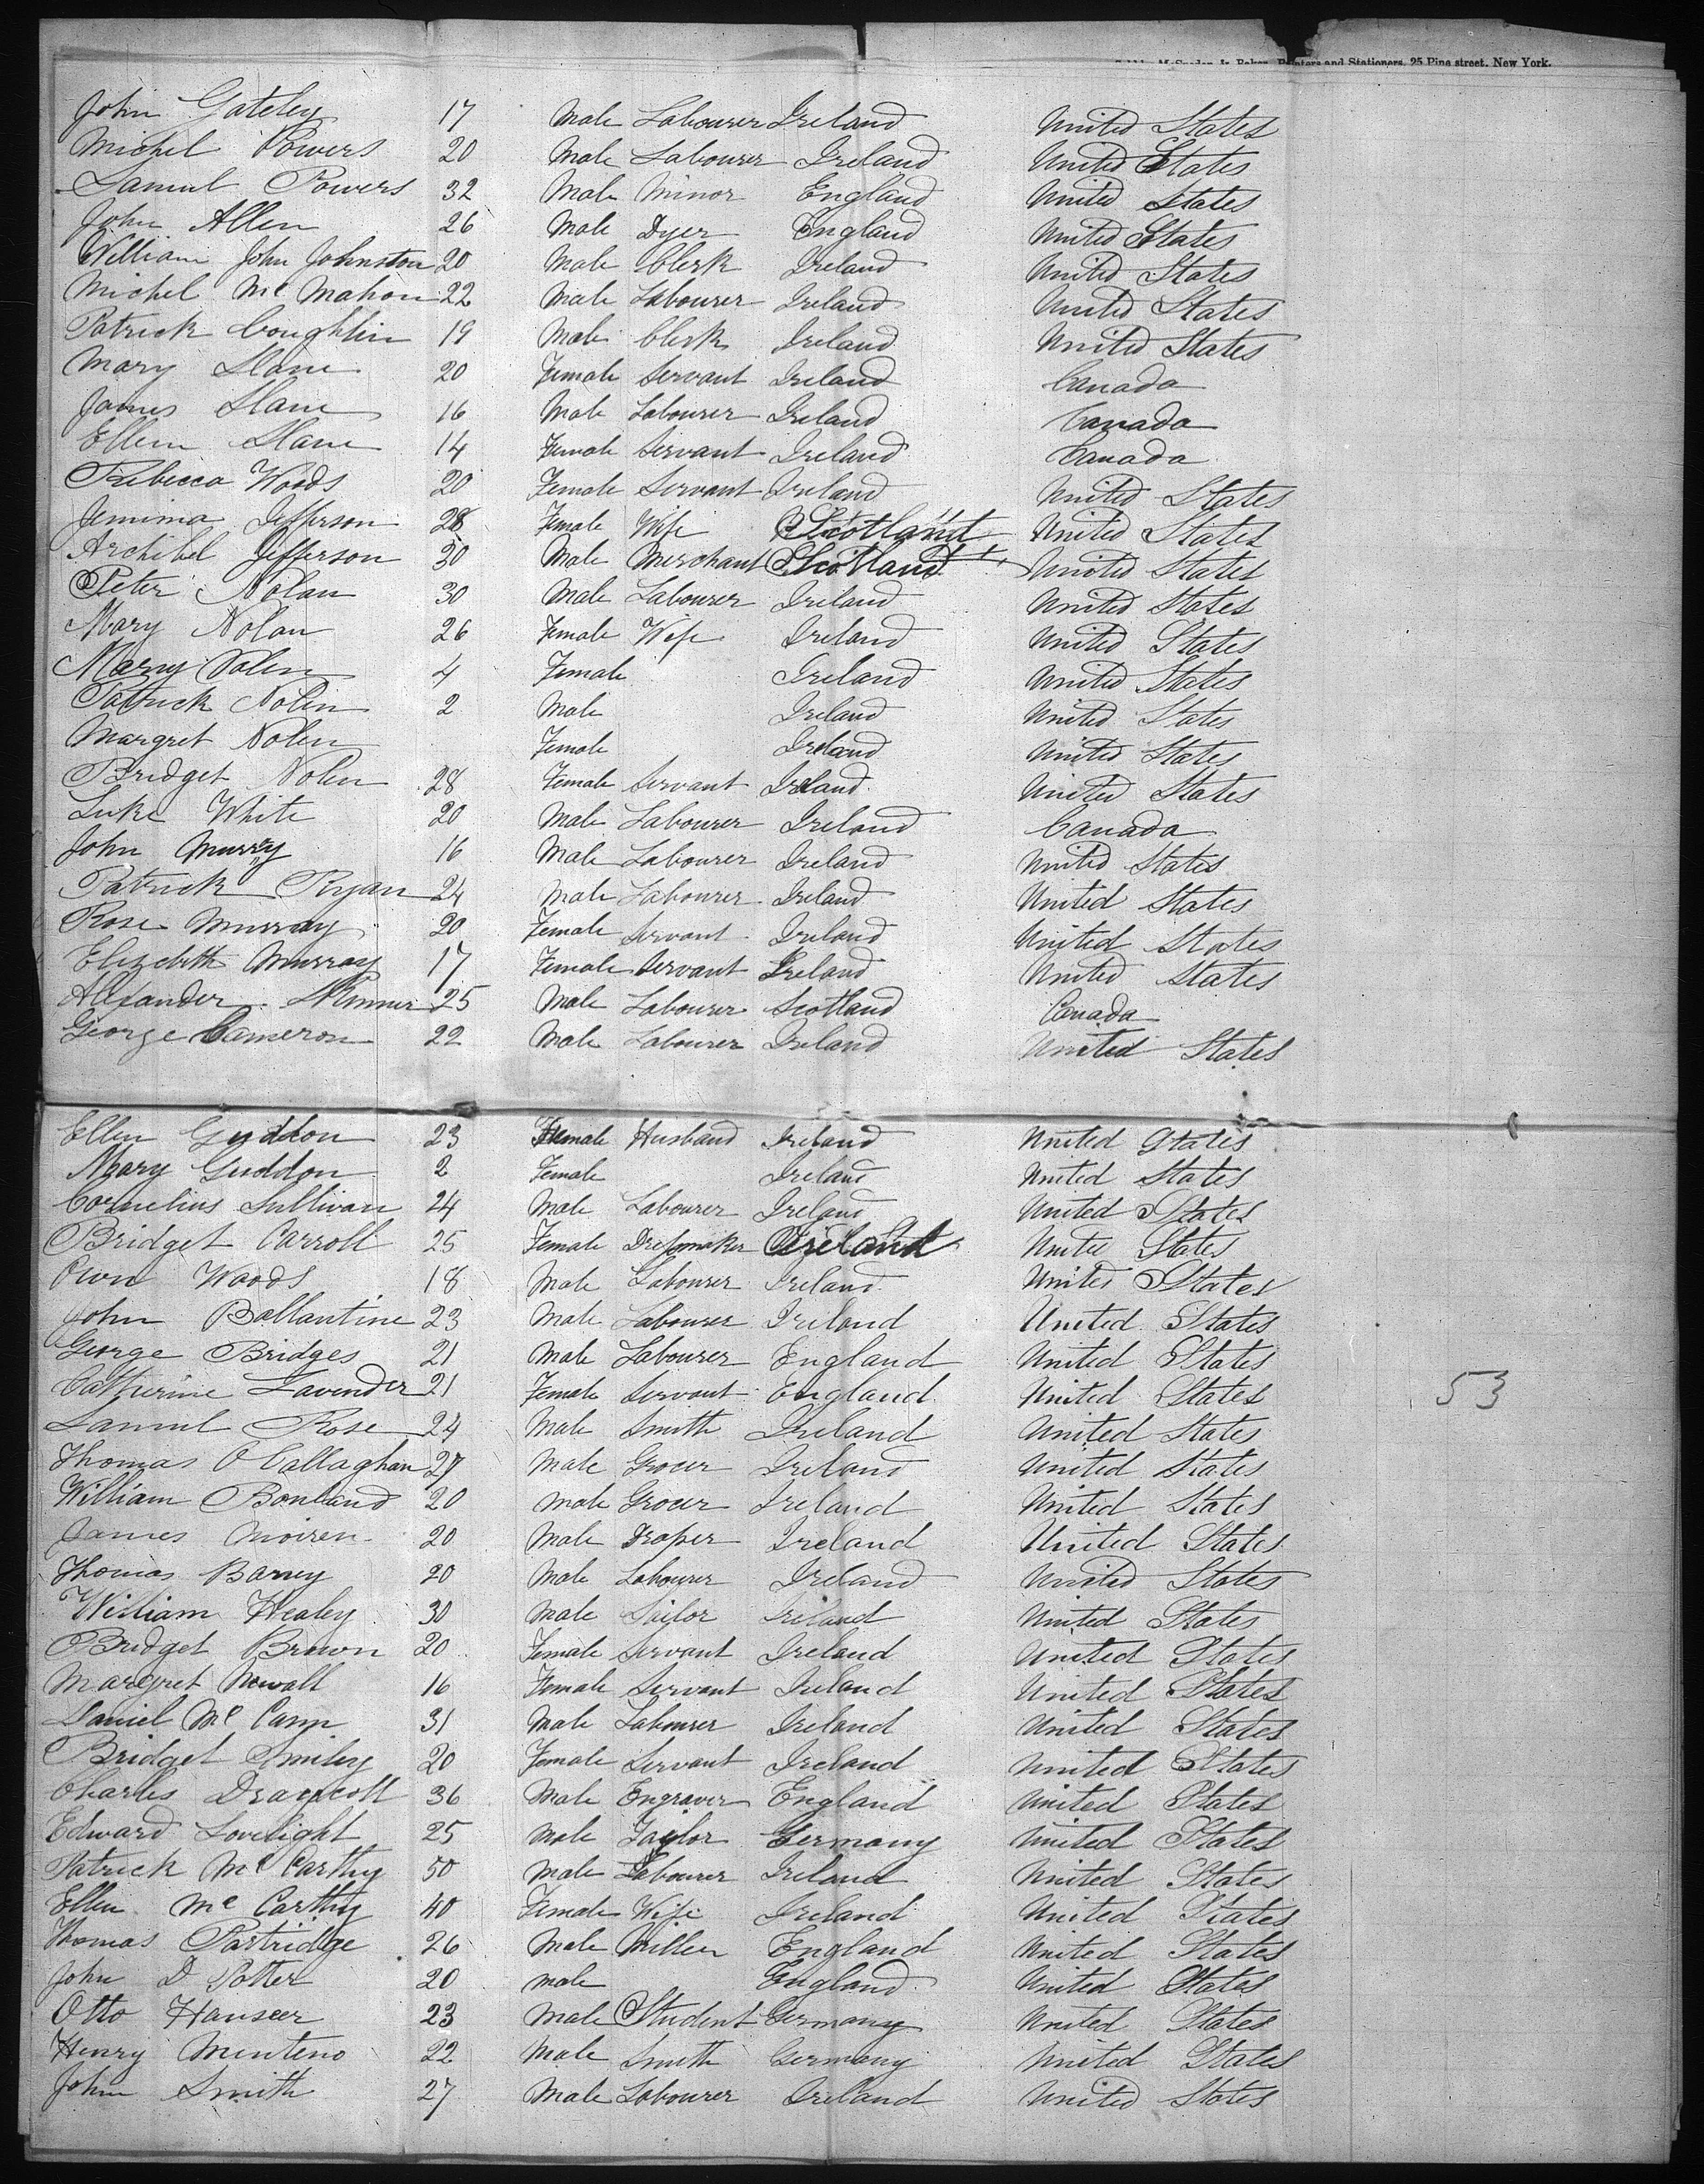 Printers and Stationers, 25 Pine street, New York.
John Gateley 17 Male Labourer Ireland United States
Michel Powers 20 Male Labourer Ireland United States
Samul Powers 32 Male Minor England United States
John Allen 26 Male Dyer England United States
William John Johnston 20 Male Clerk Ireland United States
Michel Mc Mahon 22 Male Labourer Ireland United States
Patrick Coughlin 19 Male Clerk Ireland United States
Mary Slane 20 Female Servant Ireland Canada
James Slane 16 Male Labourer Ireland Canada
Ellen Slane 14 Female Servant Ireland Canada
Rebecca Woods 20 Female Servant Ireland United States
Jemima Jefferson 28 Female Wife Scotland United States
Archibel Jefferson 30 Male Merchant Scotland United States
Peter Nolan 30 Male Labourer Ireland United States
Mary Nolan 26 Female Wife Ireland United States
Marry Nolen 4 Female Ireland United States
Patrick Nolen 2 Male Ireland United States
Margret Nolen Female Ireland United States
Bridget Nolen 28 Female Servant Ireland United States
Luke White 20 Male Labourer Ireland Canada
John Murry 16 Male Labourer Ireland United States
Patrick Ryan 24 Male Labourer Ireland United States
Rose Murray 20 Female Servant Ireland United States
Elizebeth Murray 17 Female Servant Ireland United States
Alexander Skinner 25 Male Labourer Scotland Canada
George Cameron 22 Male Labourer Ireland United States
Ellen Guddon 23 Female Husband Ireland United States
Mary Guddon 2 Female Ireland United States
Cornelius Sullivan 24 Male Labourer Ireland United States
Bridget Carroll 25 Female Dressmaker Ireland United States
Owen Woods 18 Male Labourer Ireland United States
John Ballantine 23 Male Labourer Ireland United States
George Bridges 21 Male Labourer England United States
Catherine Lavender 21 Female Servant England United States 53
Samul Rose 24 Male Smith Ireland United States
Thomas O Callaghan 27 Male Grocer Ireland United States
William 20 Male Grocer Ireland United States
James Moiren 20 Male Draper Ireland United States
Thomas Barry 20 Male Labourer Ireland United States
William Healey 30 Male Sailor Ireland United States
Bridget Brown 20 Female Servant Ireland United States
Margret 16 Female Servant Ireland United States
Daniel Mc Cann 31 Male Labourer Ireland United States
Bridget Smiley 20 Female Servant Ireland United States
Charles Draycott 36 Male Engraver England United States
Edward Lovelight 25 Male Taylor Germany United States
Patrick Mc Carthy 50 Male Labourer Ireland United States
Ellen Mc Carthy 40 Female Wife Ireland United States
Thomas Partridge 26 Male Miller England United States
John D Potter 20 male England United States
Otto Hauseer 23 Male Student Germany United States
Henry Menteno 22 Male Smith Germany United States
John Smith 27 Male Labourer Ireland United States